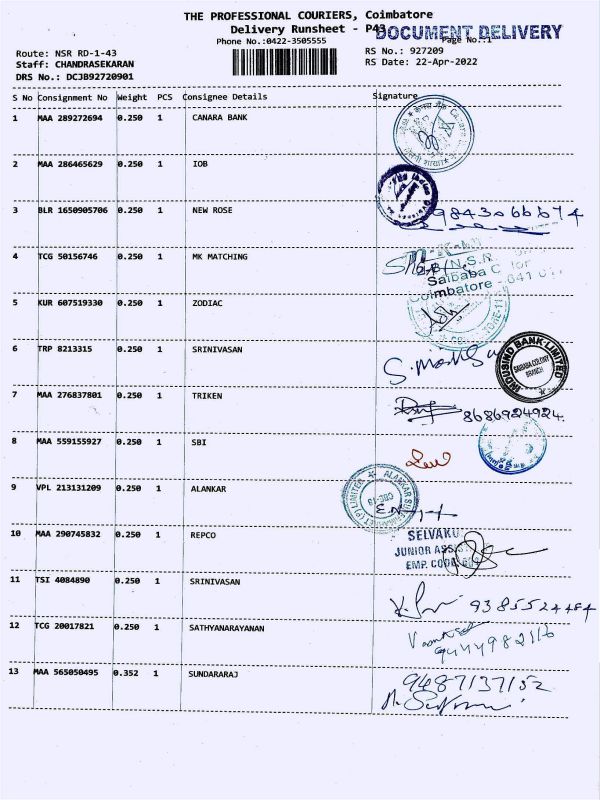 THE PROFESSIONAL COURIERS, Coimbatore
Delivery Runsheet - P43
DOCUMENT DELIVERY
Phone No.:0422-3505555
Page No.:1
Route: NSR RD-1-43
RS No.: 927209
Staff: CHANDRASEKARAN
RS Date: 22-Apr-2022
DRS No.: DCJB92720901
S No Consignment No Weight PCS Consignee Details Signature
1 MAA 289272694 0.250 1 CANARA BANK
2 MAA 286465629 0.250 1 IOB
3 BLR 1650905706 0.250 1 NEW ROSE
4 TCG 50156746 0.250 1 MK MATCHING
N.S.R
Saibaba
Coimbatore - 641
5 KUR 607519330 0.250 1 ZODIAC
6 TRP 8213315 0.250 1 SRINIVASAN
INDUSIND BANK LIMITED
SAIBABA COLONY
BRANCH
7 MAA 276837801 0.250 1 TRIKEN
8686924924
8 MAA 559155927 0.250 1 SBI
9 VPL 213131209 0.250 1 ALANKAR
10 MAA 290745832 0.250 1 REPCO
SELVAKU
JUNIOR ASS
EMP. CODE
11 TSI 4084890 0.250 1 SRINIVASAN
12 TCG 20017821 0.250 1 SATHYANARAYANAN
13 MAA 565050495 0.352 1 SUNDARARAJ
9487137152